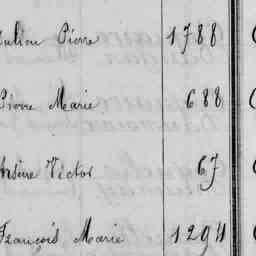 Julien Pierre 1788
Pierre Marie 688
Victor 67
François Marie 1294